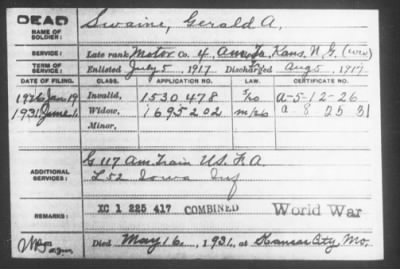 DEAD
NAME OF SOLDIER: Swaine, Gerald A.
SERVICE: Late rank, Motor Co. 4 Am. Kans. N. G. (WW)
TERM OF SERVICE: Enlisted July 5, 1917 Discharged Aug 5, 1917
DATE OF FILING. CLASS. APPLICATION NO. LAW. CERTIFICATE NO.
1926 Jan 19 Invalid, 1530478 A-5-12-26
1931 June 1 Widow, 1695202 a-8 25 31
Minor,
ADDITIONAL SERVICES: G 117 Am. Train U.S. F. A.
L 52 Iowa Inf
REMARKS: XC 1 225 417 COMBINED World War
Died May 16, 1931, at Kansas City, Mo.